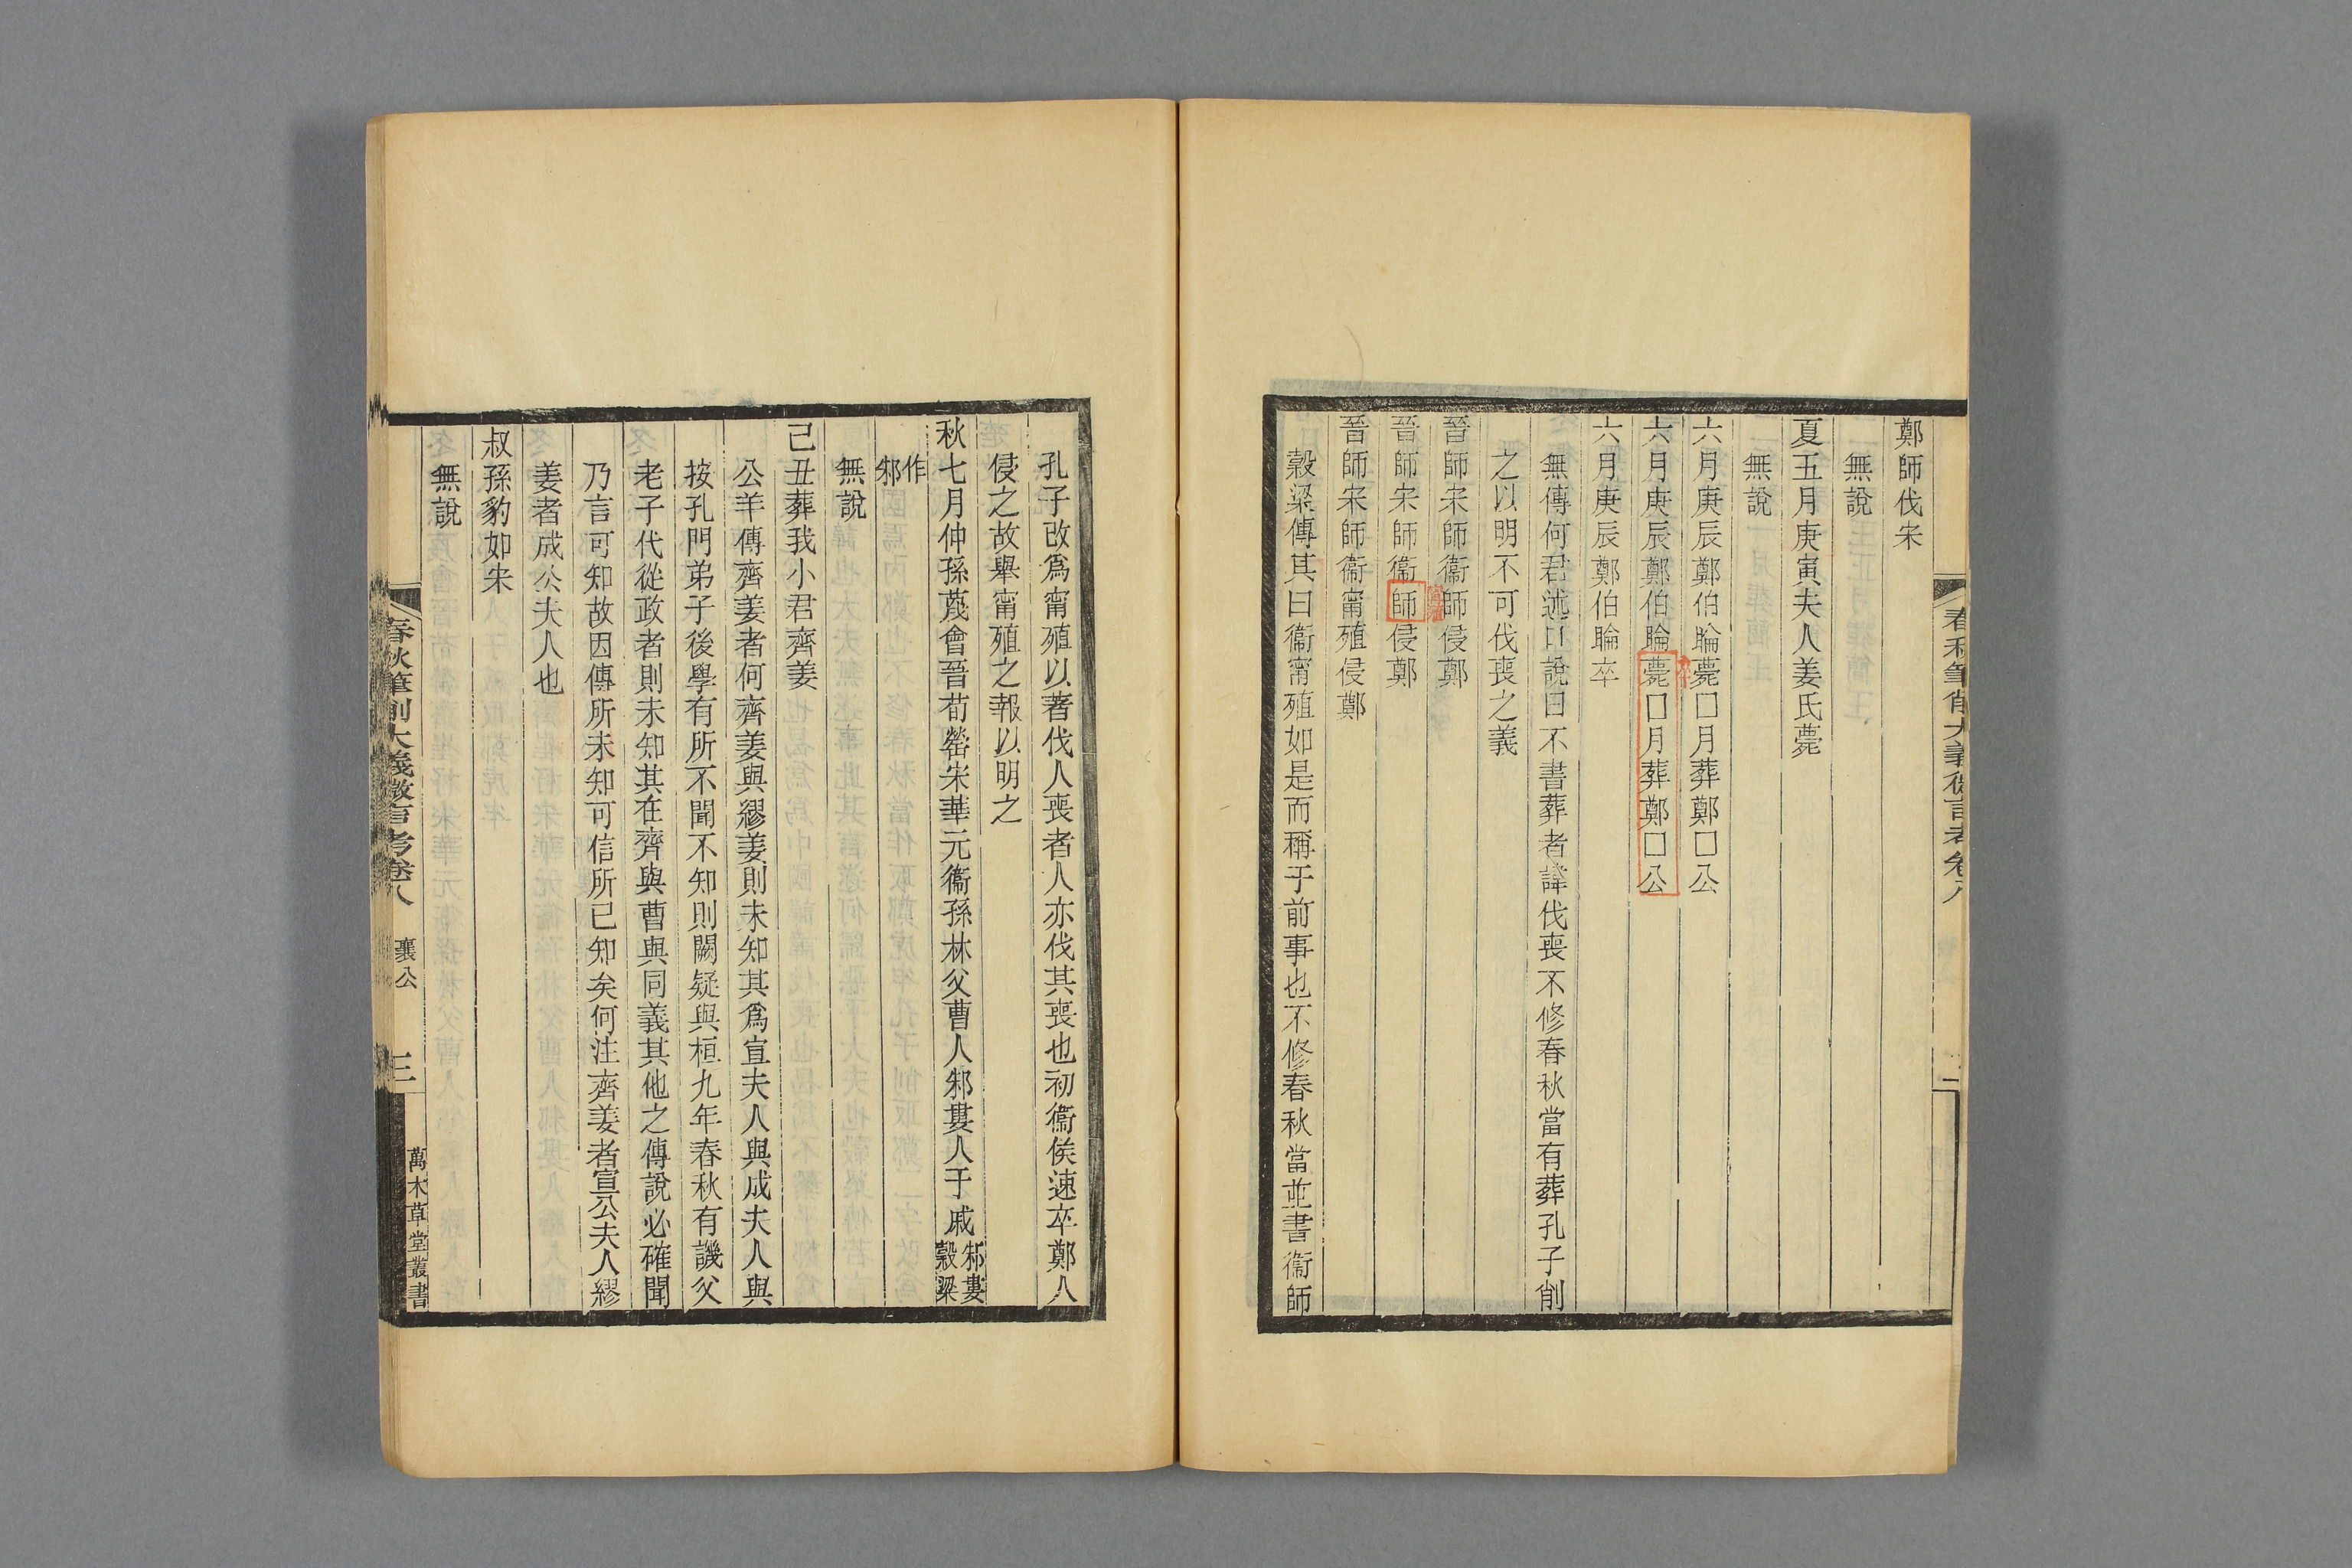 鄭師伐宋
無說
夏五月庚寅夫人姜氏薨
無說
六月庚辰鄭伯睔薨□月葬鄭□公
六月庚辰鄭伯睔薨□月葬鄭□公
六月庚辰鄭伯睔卒
無傳何君述口說曰不書葬者諱伐喪不修春秋當有葬孔子削
之以明不可伐喪之義
晉師宋師衞師侵鄭
晉師宋師衞師侵鄭
晉師宋師衞甯殖侵鄭
穀梁傳其曰衞甯殖如是而稱于前事也不修春秋當並書衞師
春秋筆削大義微言考卷八
二
孔子改爲甯殖以著伐人喪者人亦伐其喪也初衞侯速卒鄭人
侵之故舉甯殖之報以明之
秋七月仲孫蔑會晉荀罃宋華元衞孫林父曹人邾婁人于戚邾婁穀梁
作邾
無說
己丑葬我小君齊姜
公羊傳齊姜者何齊姜與繆姜則未知其爲宣夫人與成夫人與
按孔門弟子後學有所不聞不知則闕疑與桓九年春秋有譏父
老子代從政者則未知其在齊與曹與同義其他之傳說必確聞
乃言可知故因傳所未知可信所已知矣何注齊姜者宣公夫人繆
姜者成公夫人也
叔孫豹如宋
無說
春秋筆削大義微言考卷八
襄公
三
萬木草堂叢書